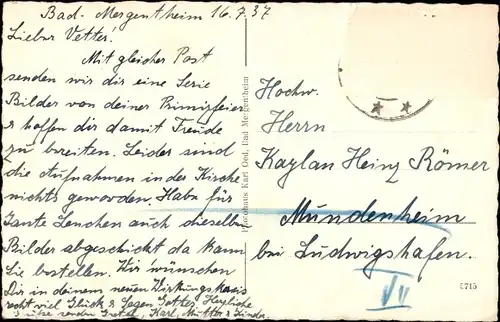 Bad-Mergentheim 16.7.37
Lieber Vetter!
Mit gleicher Post
senden wir dir eine Serie
Bilder von deiner Primizfeier
& hoffen dir damit Freude
zu bereiten. Leider sind
die Aufnahmen in der Kirche
nichts geworden. Habe für
Tante Lenchen auch dieselben
Bilder abgeschickt da kann
Sie bestellen. Wir wünschen
Dir in deinem neuen Wirkungskreis
recht viel Glück & Segen Gottes. Herzliche
Grüße senden Gretel, Karl, Mutter & Kinder
Photohaus Karl Oed, Bad Mergentheim
Hochw.
Herrn
Kaplan Heinz Römer
Mundenheim
bei Ludwigshafen.
VII
5715